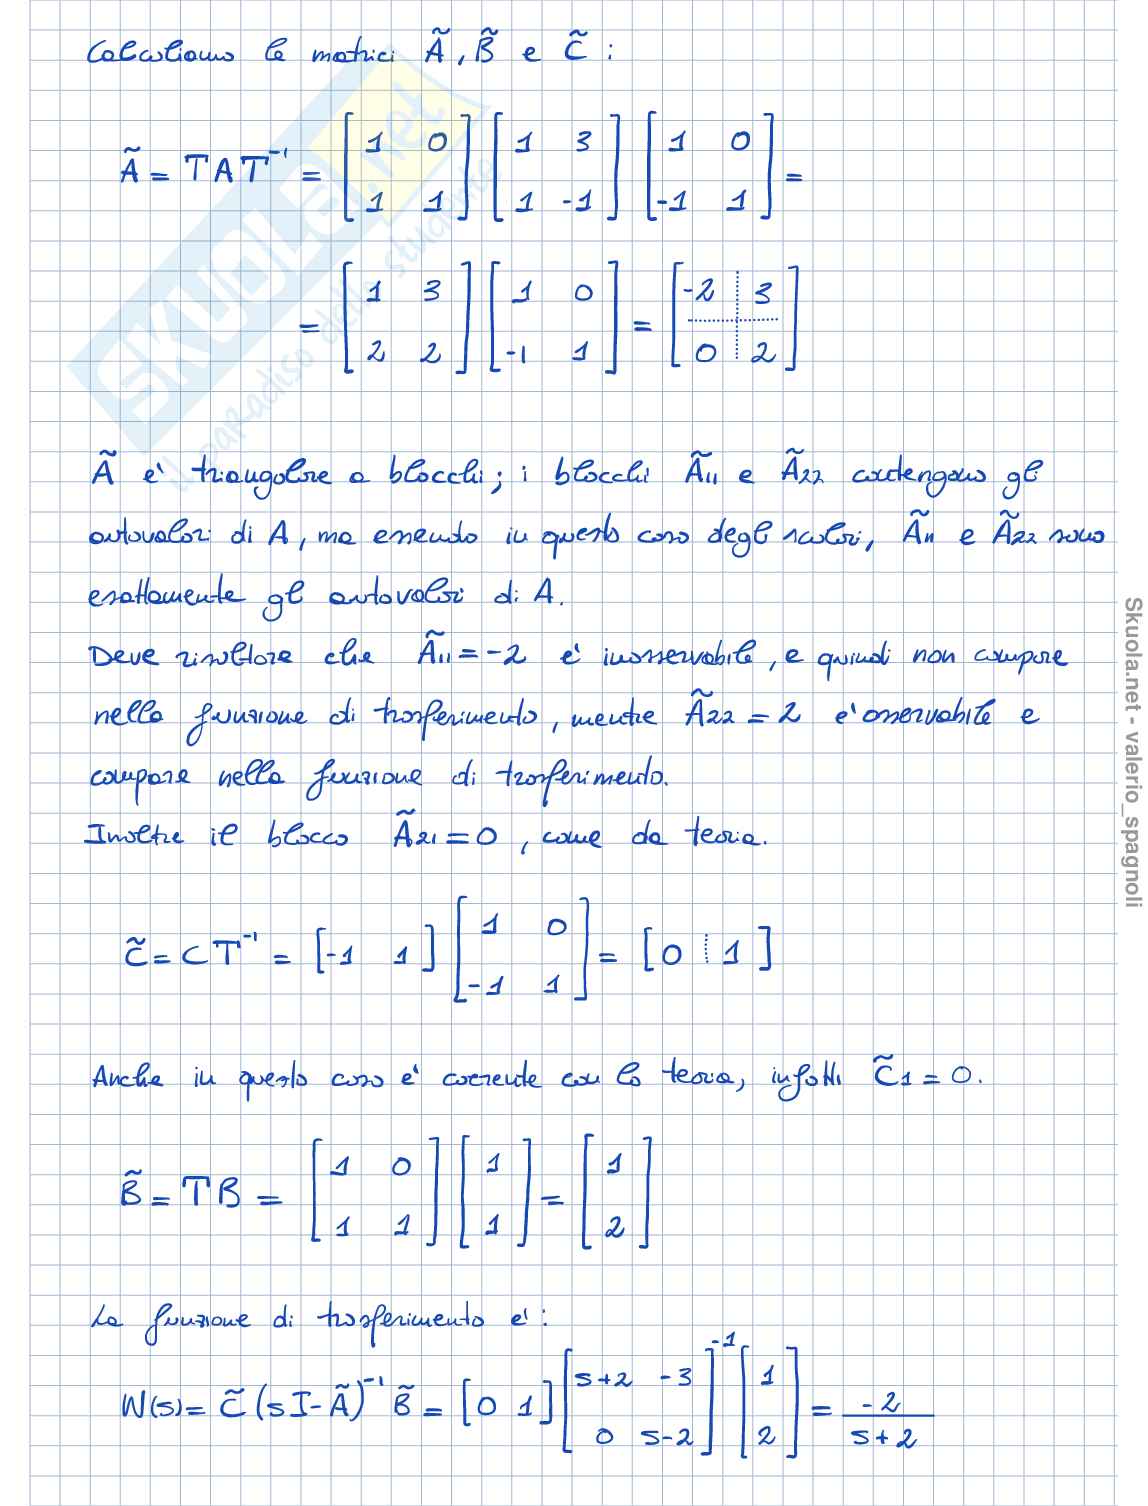 Calcoliamo le matrici Ã, B̃ e C̃ :
Ã = T A T⁻¹ = [1 0; 1 1] [1 3; 1 -1] [1 0; -1 1] =
= [1 3; 2 2] [1 0; -1 1] = [-2 3; 0 2]
Ã e' triangolare a blocchi; i blocchi Ã₁₁ e Ã₂₂ contengono gli
autovalori di A, ma essendo in questo caso degli scalari, Ã₁₁ e Ã₂₂ sono
esattamente gli autovalori di A.
Deve risultare che Ã₁₁ = -2 e' inosservabile, e quindi non compare
nella funzione di trasferimento, mentre Ã₂₂ = 2 e' osservabile e
compare nella funzione di trasferimento.
Inoltre il blocco Ã₂₁ = 0, come da teoria.
C̃ = C T⁻¹ = [-1 1] [1 0; -1 1] = [0 1]
Anche in questo caso e' coerente con la teoria, infatti C̃₁ = 0.
B̃ = T B = [1 0; 1 1] [1; 1] = [1; 2]
La funzione di trasferimento e' :
W(s) = C̃ (sI - Ã)⁻¹ B̃ = [0 1] [s+2 -3; 0 s-2]⁻¹ [1; 2] = -2 / s+2
SKUOLA.net
il paradiso dello studente
Skuola.net - valerio_spagnoli